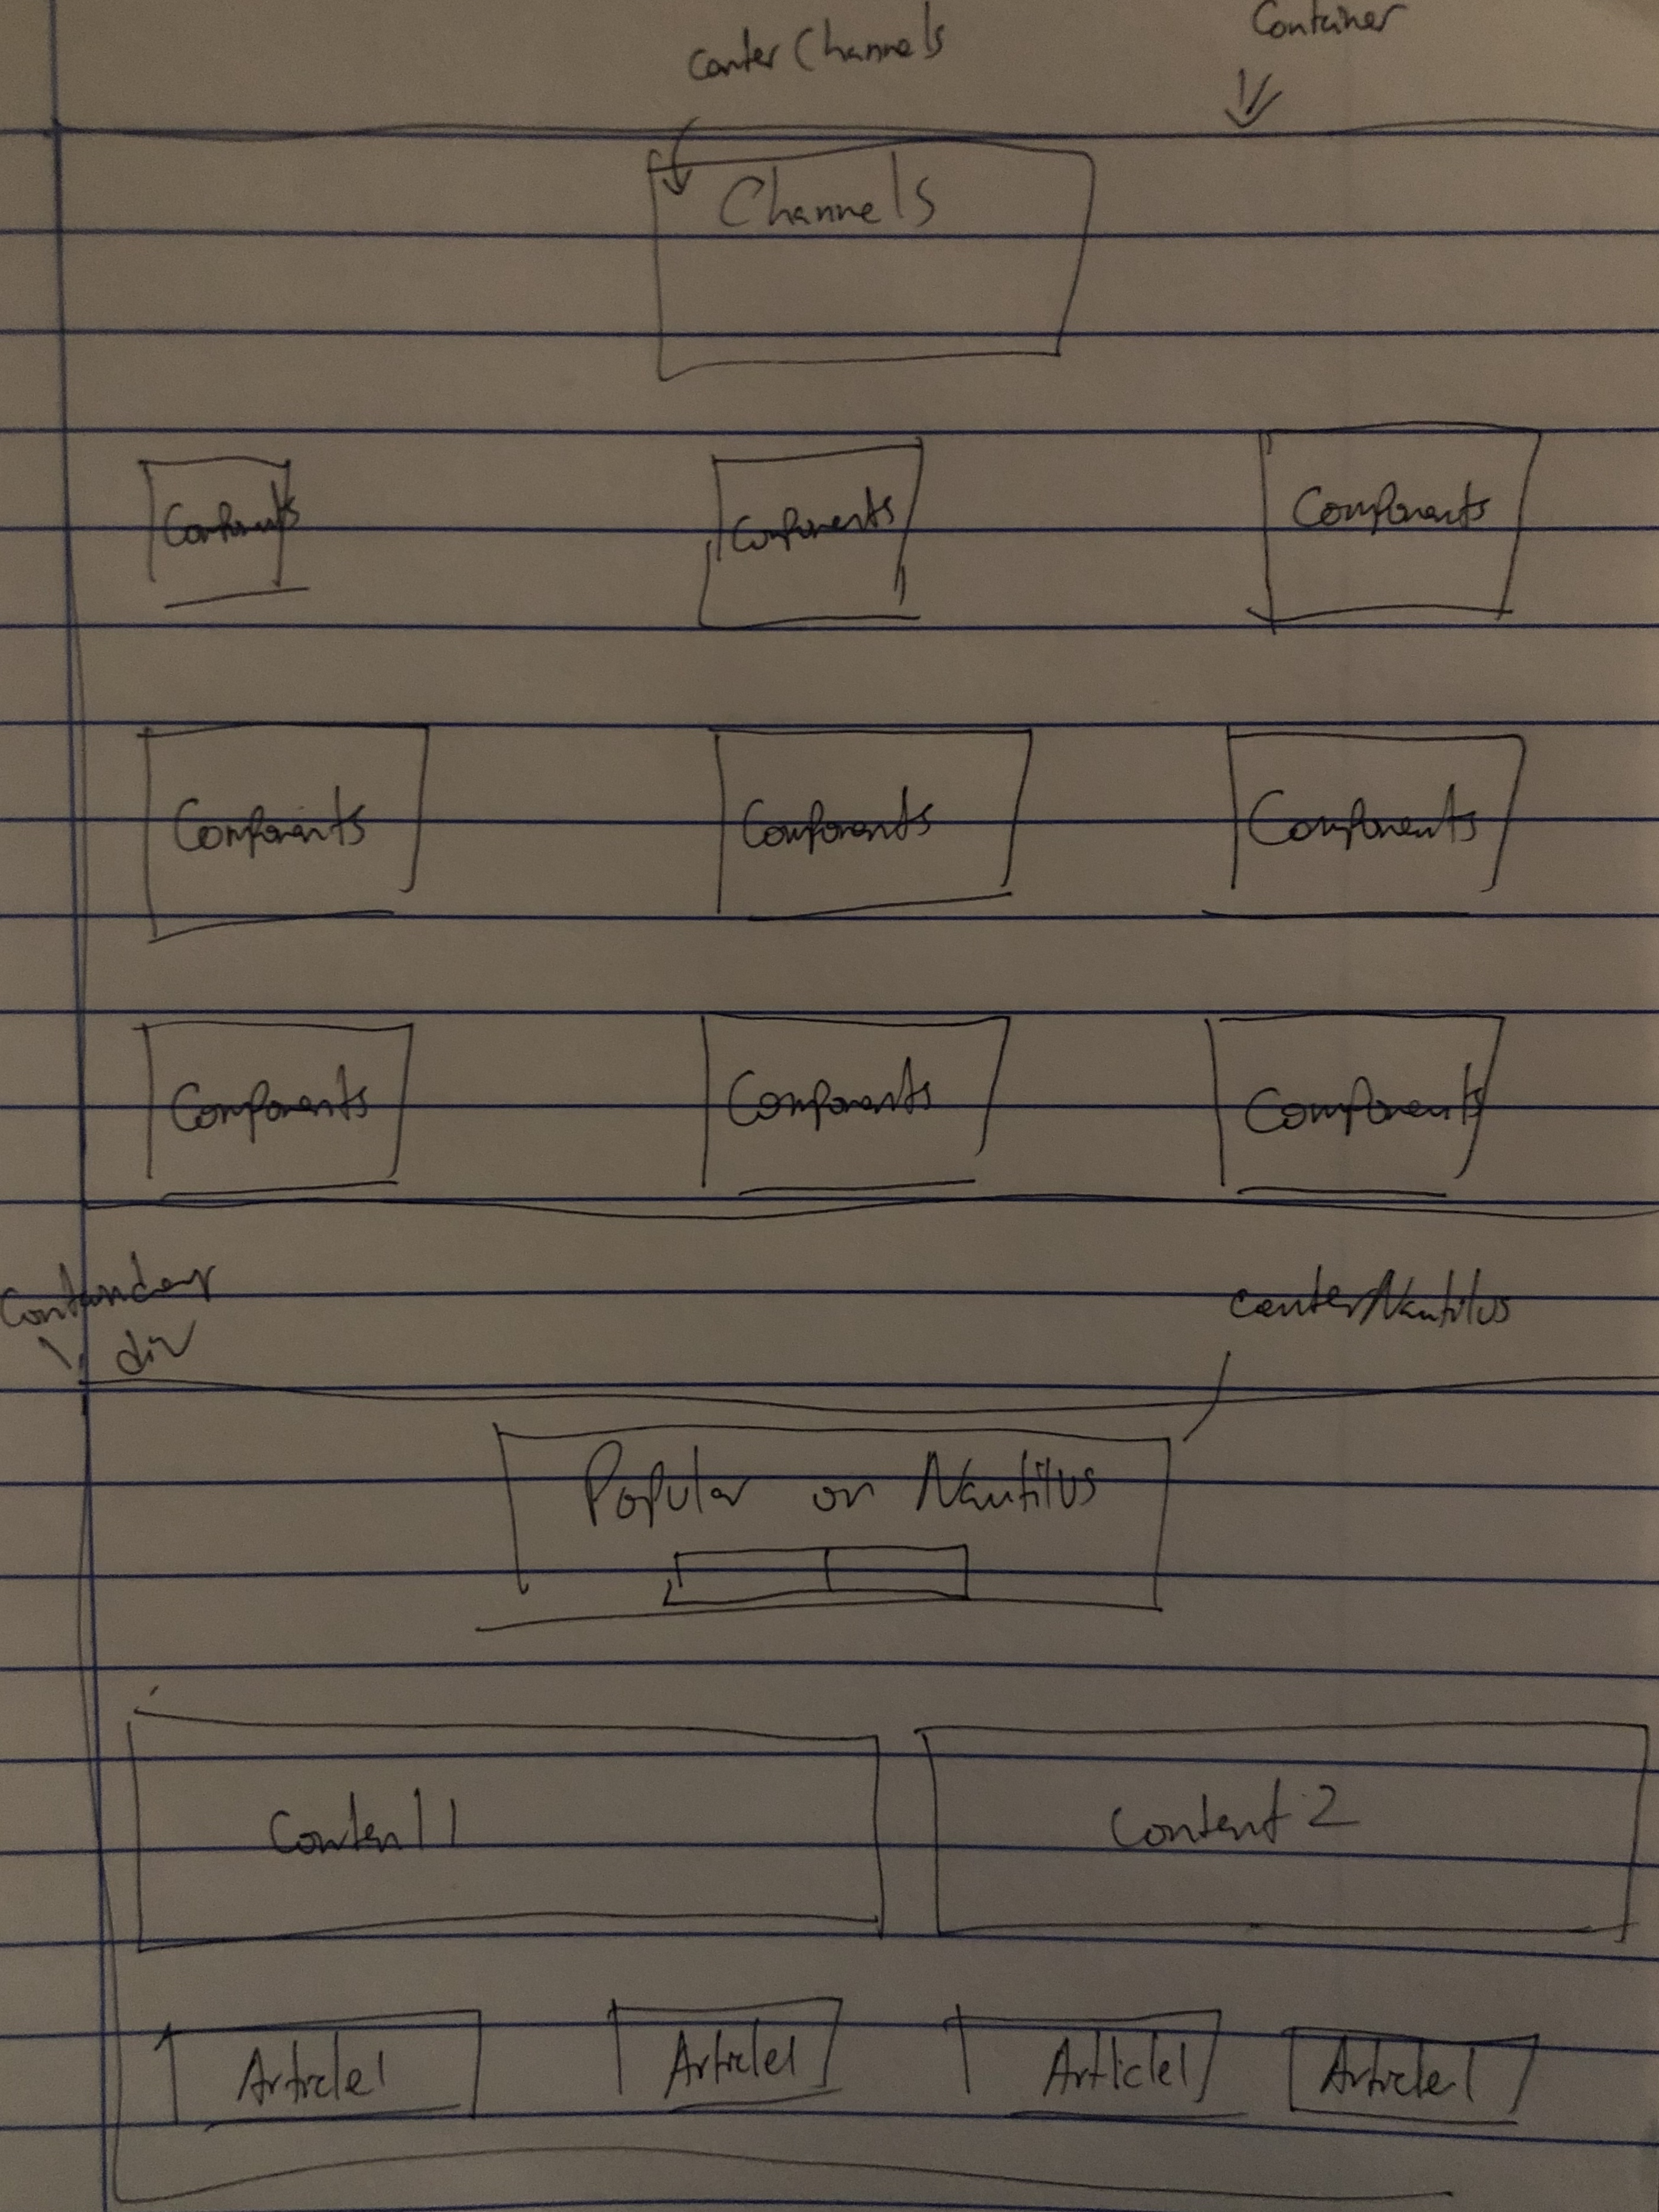 Container
center Channels
Channels
Components Components Components
Components Components Components
Components Components Components
center Nautilus
div
Popular on Nautilus
Content 1 Content 2
Article1 Article1 Article1 Article1